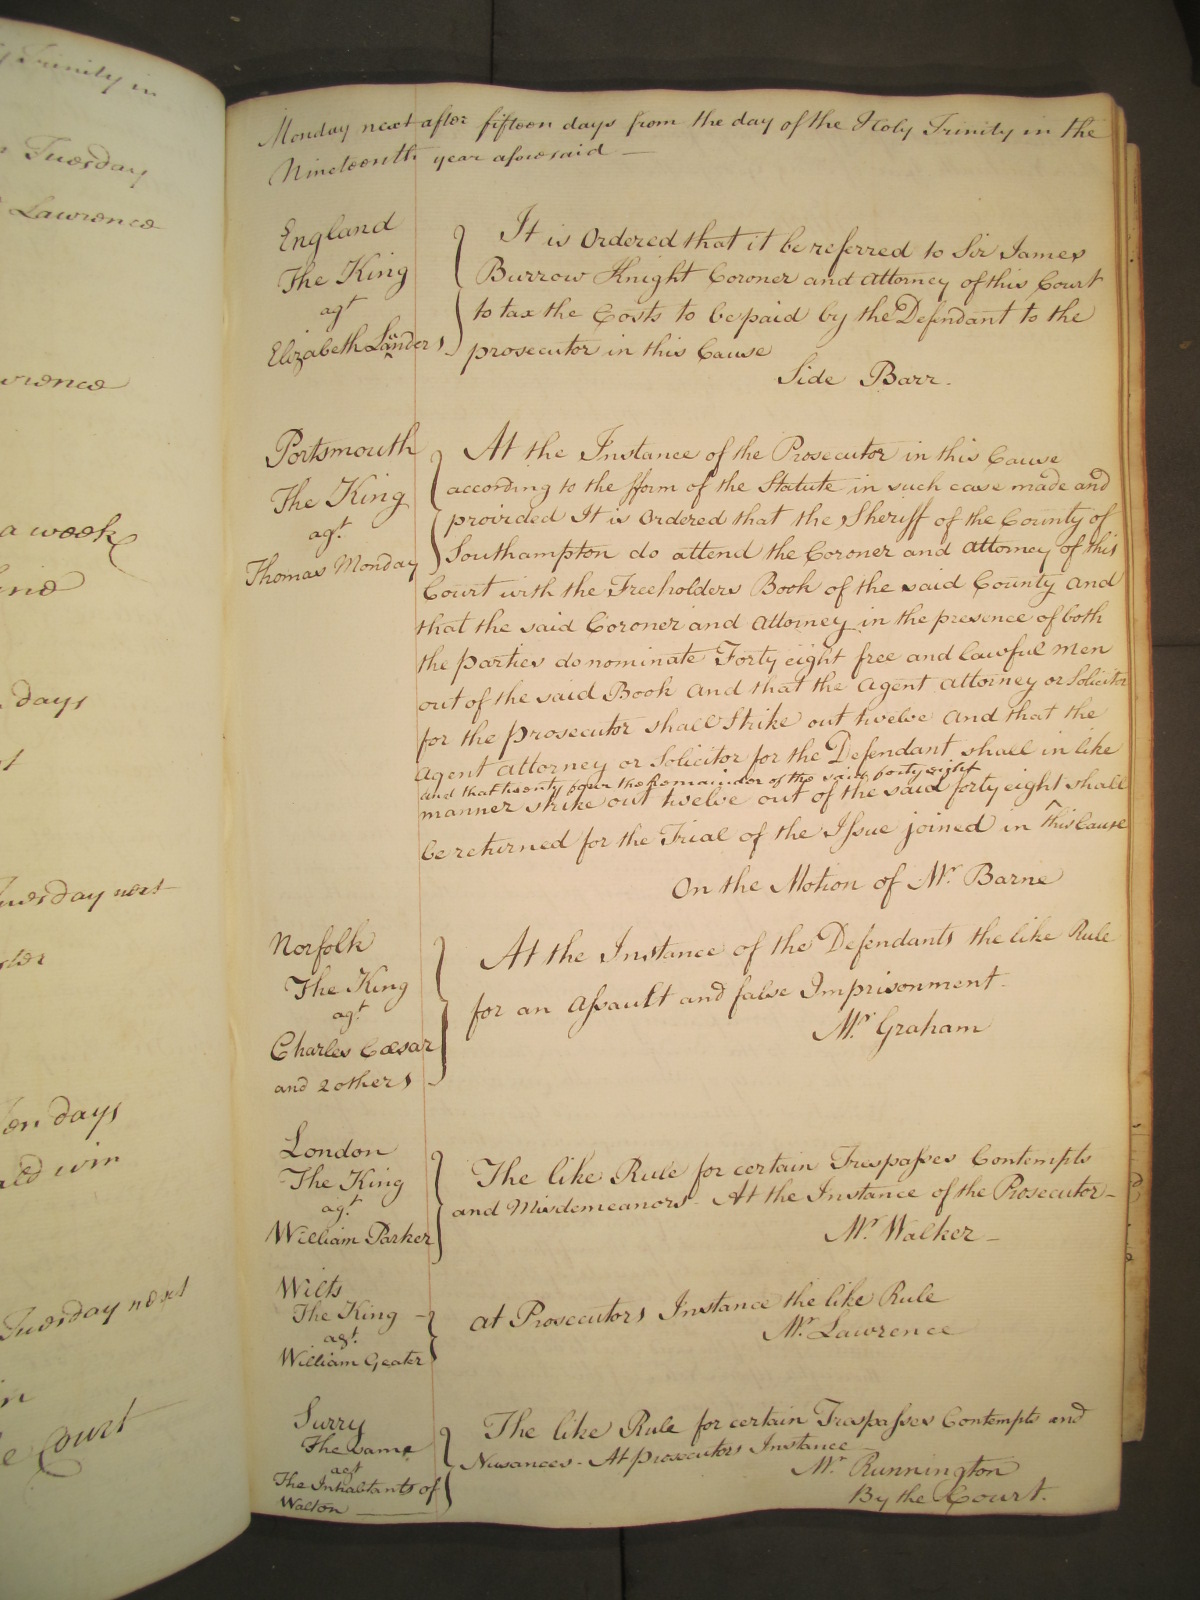 Trinity in
Tuesday
Lawrence
a week
days
Tuesday next
Ten days
Tuesday next
Court
Monday next after fifteen days from the day of the Holy Trinity in the
Nineteenth year aforesaid —
England
The King
agt
Elizabeth Saunders
It is Ordered that it be referred to Sir James
Burrow Knight Coroner and Attorney of this Court
to tax the Costs to be paid by the Defendant to the
prosecutor in this Cause
Side Barr.
Portsmouth
The King
agt.
Thomas Monday
At the Instance of the Prosecutor in this Cause
according to the fform of the Statute in such case made and
provided It is Ordered that the Sheriff of the County of
Southampton do attend the Coroner and Attorney of this
Court with the Freeholders Book of the said County and
that the said Coroner and Attorney in the presence of both
the parties do nominate Forty eight free and lawful men
out of the said Book and that the Agent Attorney or Solicitor
for the prosecutor shall Strike out twelve and that the
Agent Attorney or Solicitor for the Defendant shall in like
and that twenty four the Remainder of the said forty eight
manner strike out twelve out of the said forty eight shall
be returned for the Trial of the Issue joined in this Cause
On the Motion of Mr. Barne
Norfolk
The King
agt.
Charles Cæsar
and 2 others
At the Instance of the Defendants the like Rule
for an Assault and false Imprisonment.
Mr. Graham
London
The King
agt.
William Parker
The like Rule for certain Trespasses Contempts
and Misdemeanors - At the Instance of the Prosecutor -
Mr. Walker -
Wilts
The King -
agt.
William Geater
at Prosecutors Instance the like Rule
Mr. Lawrence
Surry
The same
agt
The Inhabitants of
Walton
The like Rule for certain Trespasses Contempts and
Nusances - At prosecutors Instance
Mr. Runnington
By the Court.